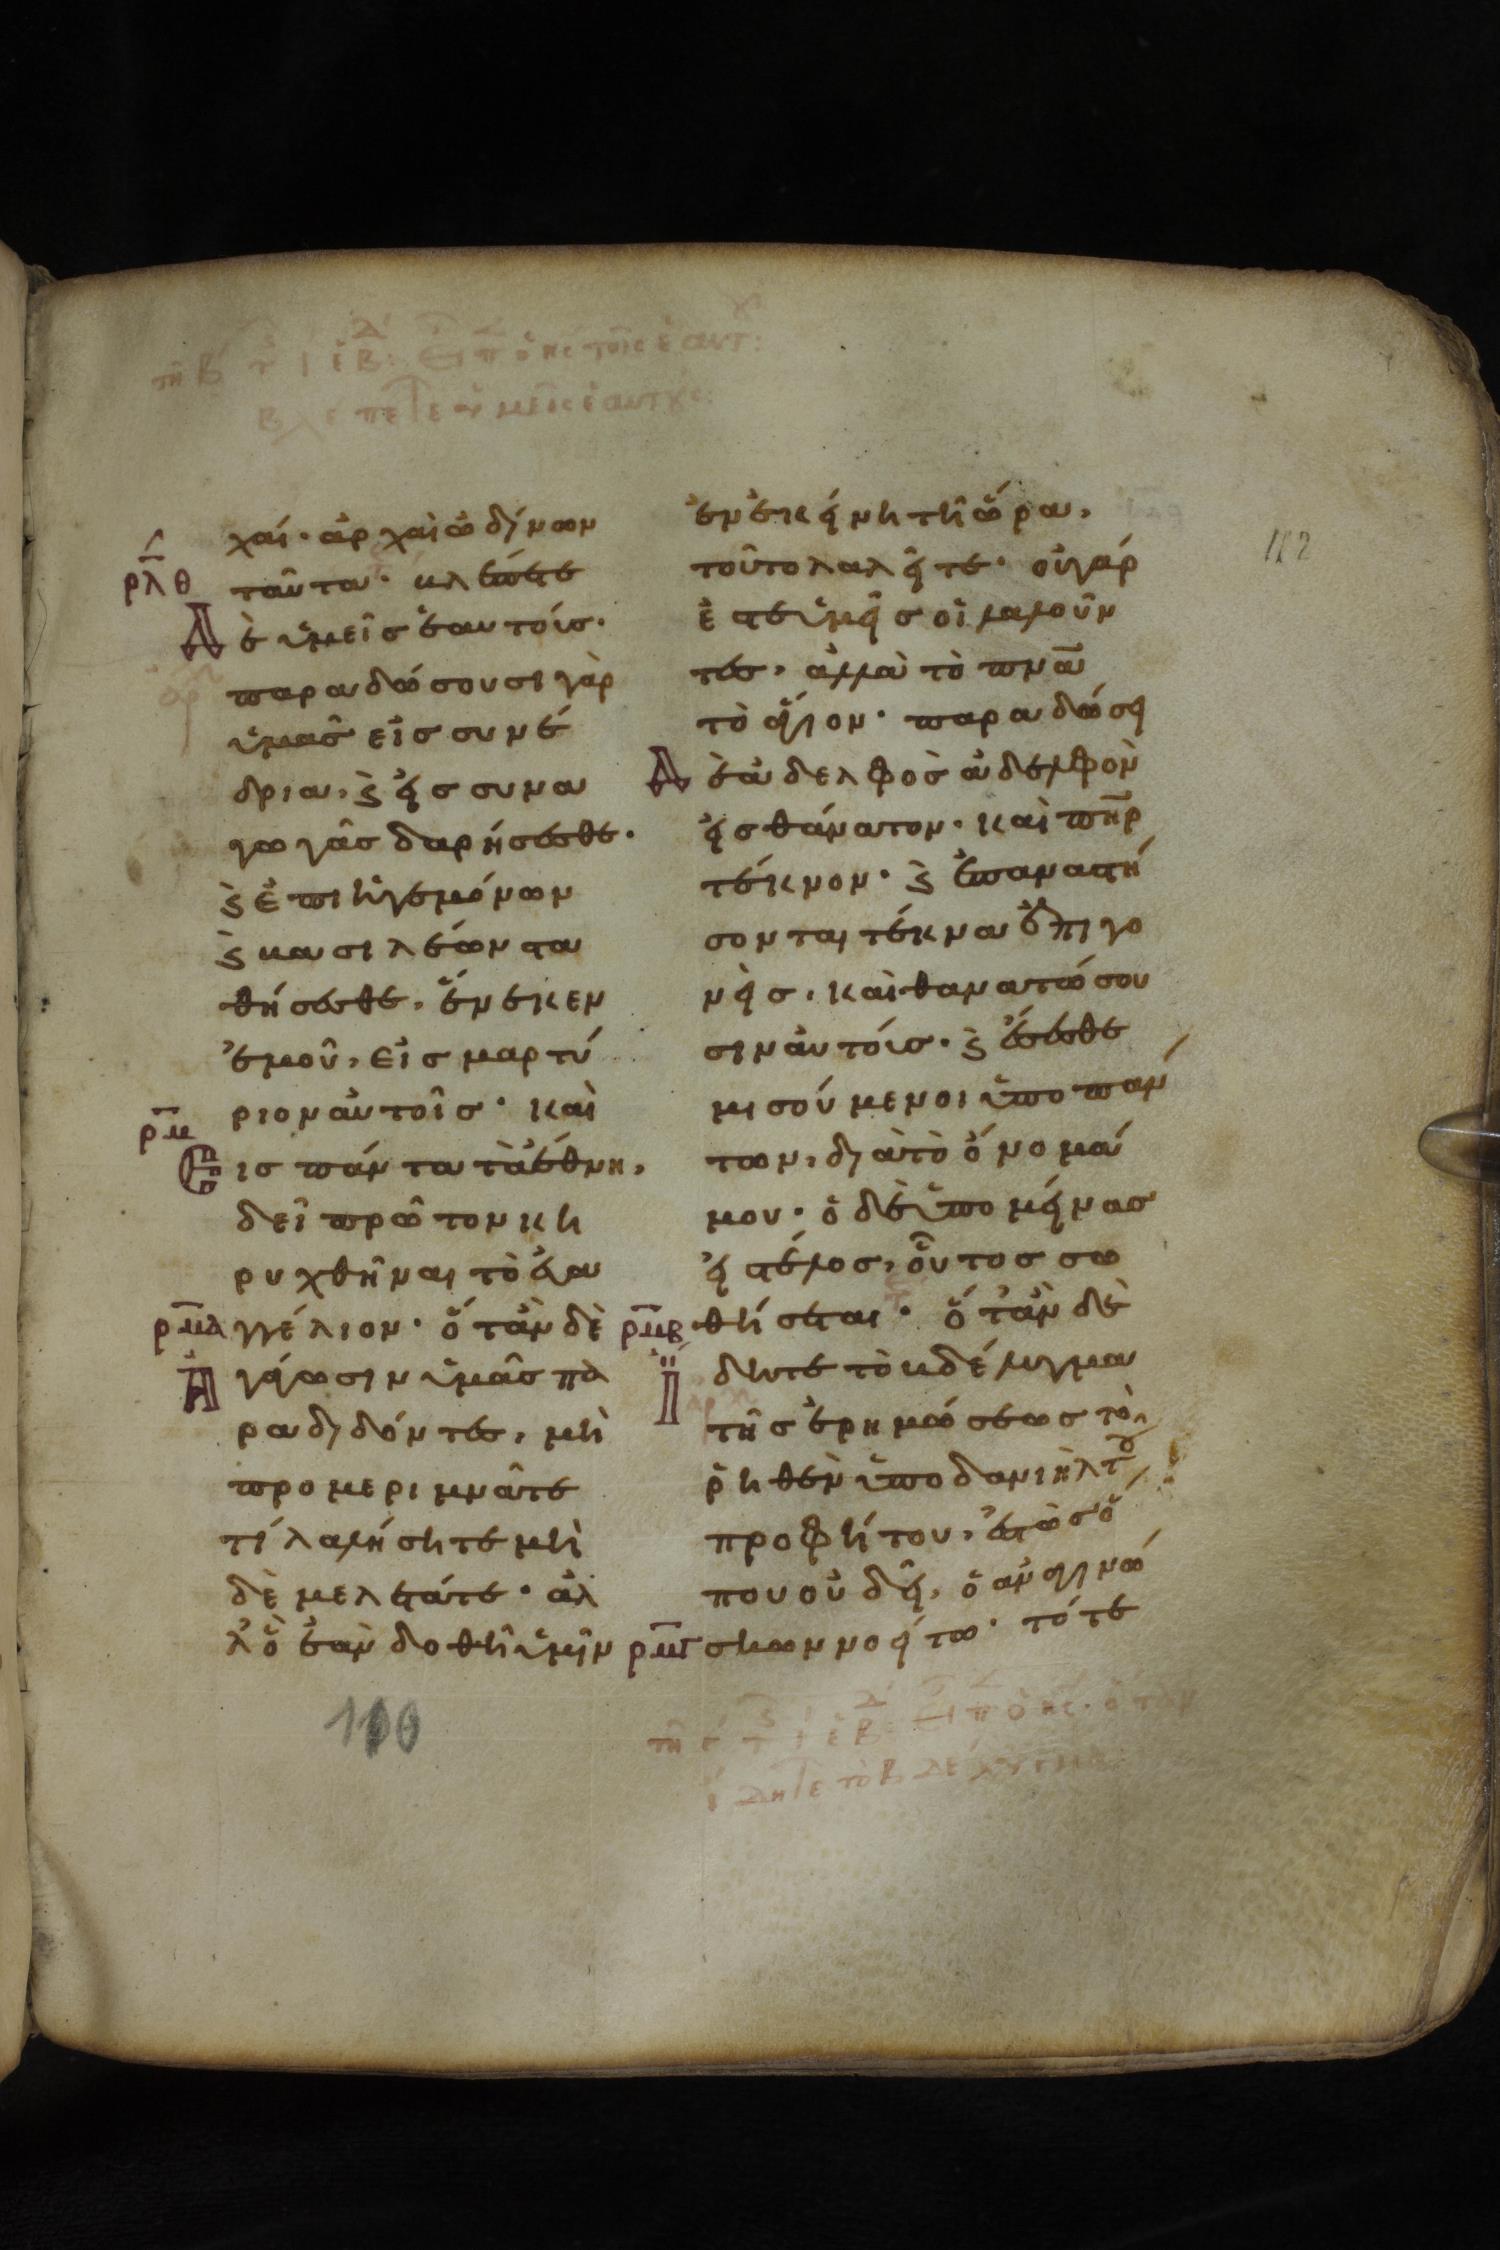 βλέπετε ὑμεῖς ἑαυτȣς:
χαί· ἀρχαὶ ὠδίνων
ρλθ ταῦτα· βλέπετε
Δὲ ὑμεῖς ἑαυτοίς·
παραδώσουσι γὰρ
ὑμᾶς εἰς συνέ
δρια, ϗ εἰς συνα
γωγᾶς δαρήσεσθε·
ϗ ἐπι ἡγεμόνων
ϗ βασιλέων στα
θήσεσθε, ἕνεκεν
ἐμοῦ, εἰς μαρτύ
ριον αὐτοῖς· καὶ
ρμ Εἰς πάντα τὰ ἔθνη,
δεῖ πρῶτον κη
ρυχθῆναι τὸ εὐα
ρμα γγέλιον· ὅταν δὲ
Ἀγάγωσιν ὑμᾶς πα
ραδιδόντες, μὴ
προμεριμνᾶτε
τί λαλήσητε μὴ
δὲ μελετάτε· ἀλ
λ' ὃ ἐὰν δοθῆ ὑμῖν
110
ἐν ἐκείνη τῆ ὥρα,
τοῦτο λαλεῖτε· οὐ γάρ
ἐστε ὑμεῖς οἱ λαλοῦν
τες, ἀλλὰ τὸ πνα
τὸ ἅγιον· παραδώσει
Δὲ ἀδελφὸς ἀδελφὸν
εἰς θάνατον· καὶ πηρ
τέκνον· ϗ ἐπαναστή
σονται τέκνα ἐπι γο
νεὶς, καὶ θανατώσου
σιν αὐτοίς· ϗ ἔσεσθε
μισούμενοι ὑπο παν
των, διὰ τὸ ὄνομά
μου· ὁ δὲ ὑπομείνας
εἰς τέλος, οὗτος σω
ρμβ θήσεται· ὅταν δὲ
Ἴδητε τὸ βδέλυγμα
τῆς ἐρημώσεως τὸ
ῥηθὲν ὑπο δανιὴλ τȣ
προφήτου, ἑστὼς ὅ
που οὐ δεῖ, ὁ ἀναγινώ
ρμγ σκων νοείτω· τότε
ἴδητε τὸ βδέλυγμα:
112